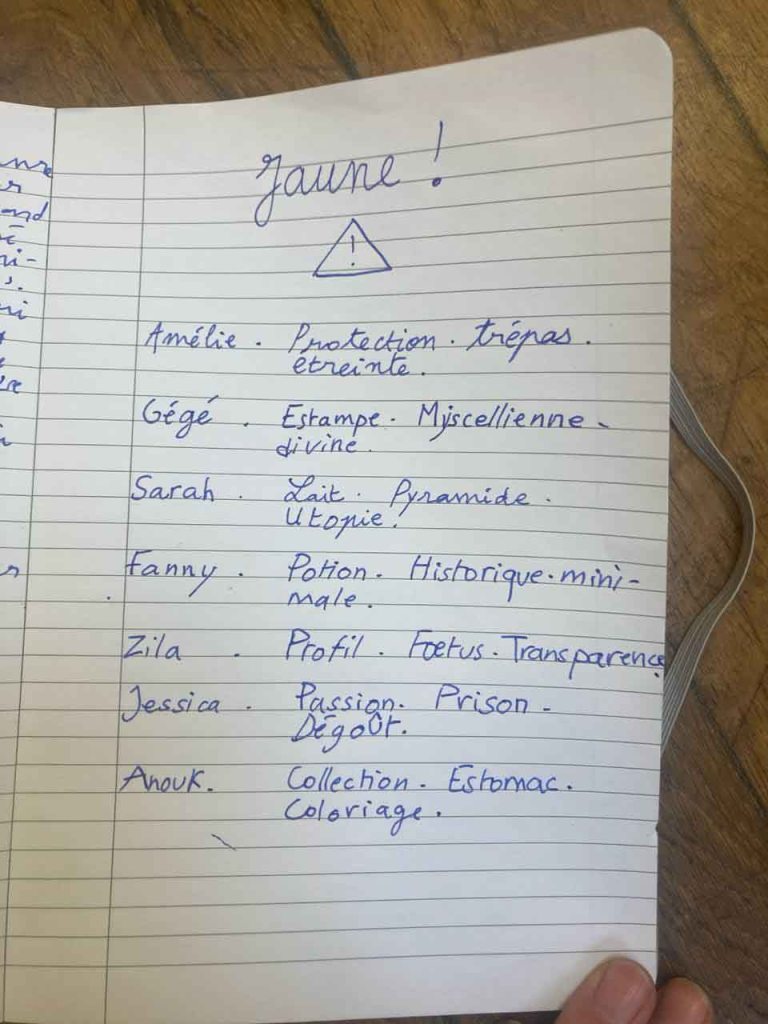 Jaune !
!
Amélie . Protection . trépas .
étreinte .
Gégé . Estampe . Myscellienne -
divine .
Sarah . Lait . Pyramide .
Utopie .
Fanny . Potion . Historique . mini-
male .
Zila . Profil . Fœtus . Transparence
Jessica . Passion . Prison -
Dégoût .
Anouk . Collection . Estomac .
Coloriage .